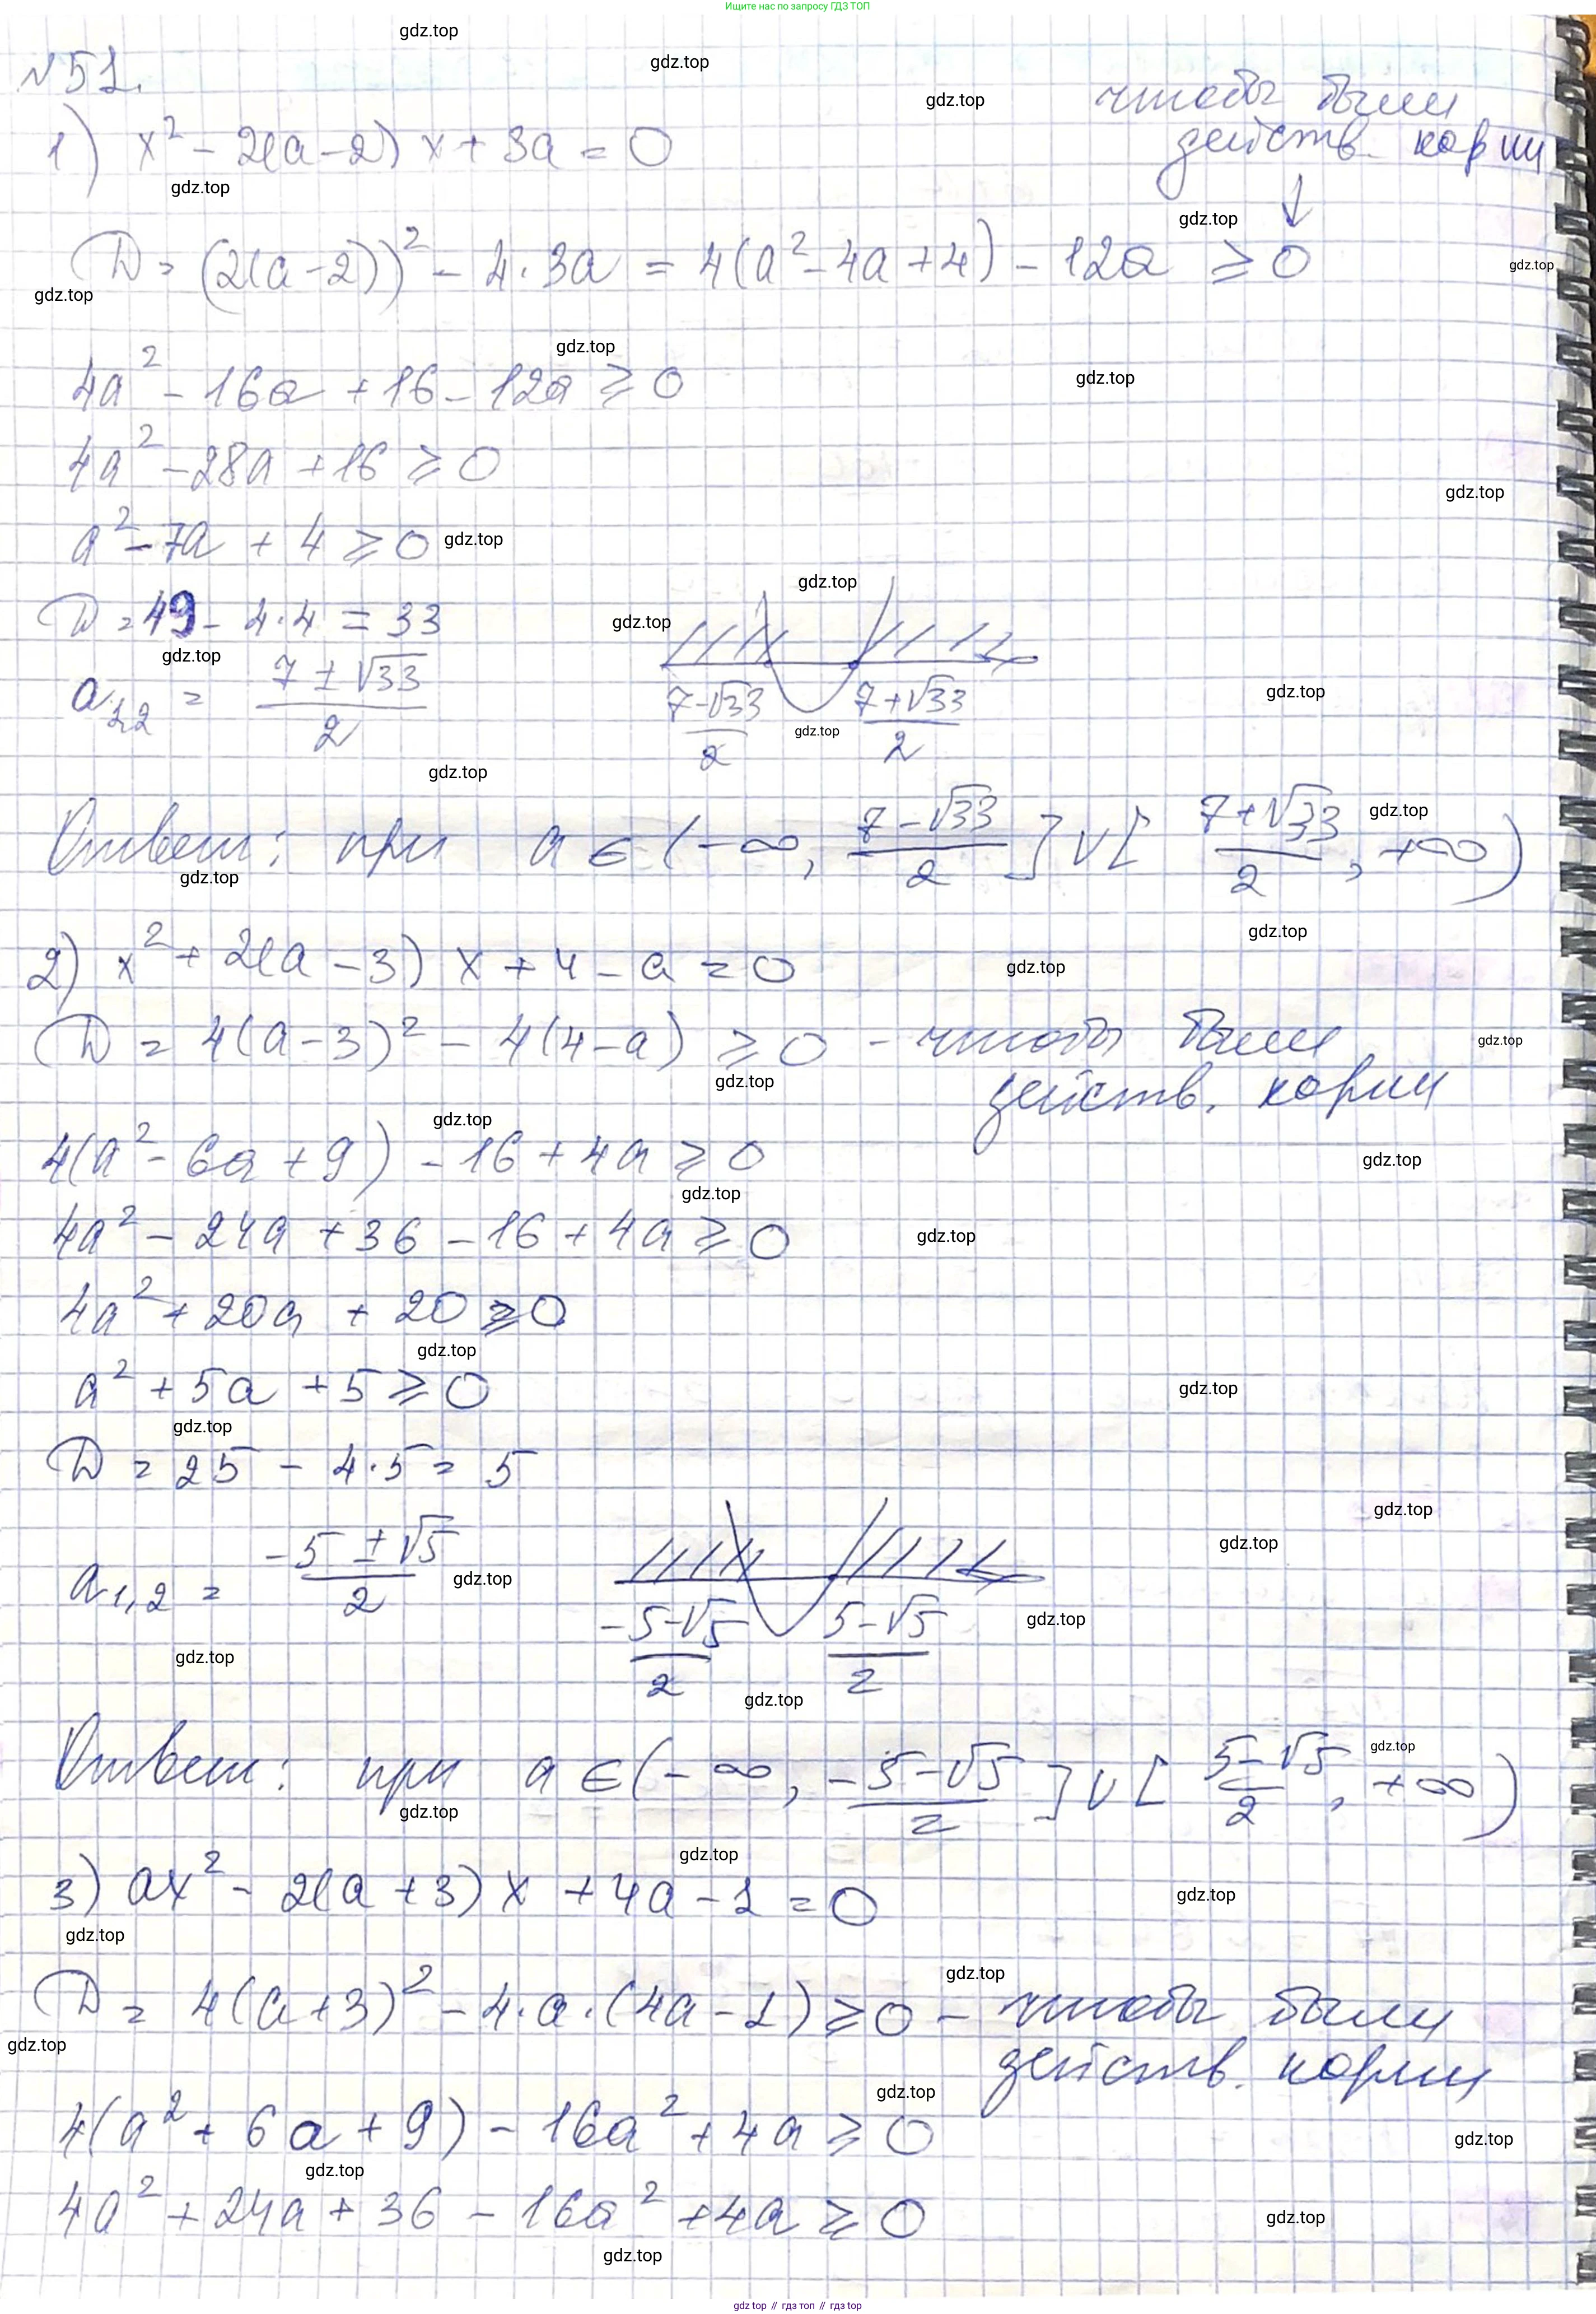 Ищите нас по запросу ГДЗ ТОП
№51.
1) x² - 2(a-2)x + 3a = 0
чтобы были
действ. корни
↓
D = (2(a-2))² - 4·3a = 4(a² - 4a + 4) - 12a ≥ 0
4a² - 16a + 16 - 12a ≥ 0
4a² - 28a + 16 ≥ 0
a² - 7a + 4 ≥ 0
D = 49 - 4·4 = 33
a₁,₂ = (7 ± √33)/2
(7-√33)/2 (7+√33)/2
Ответ: при a ∈ (-∞, (7-√33)/2] ∪ [(7+√33)/2, +∞)
2) x² + 2(a-3)x + 4 - a = 0
D = 4(a-3)² - 4(4-a) ≥ 0 - чтобы были
действ. корни
4(a² - 6a + 9) - 16 + 4a ≥ 0
4a² - 24a + 36 - 16 + 4a ≥ 0
4a² + 20a + 20 ≥ 0
a² + 5a + 5 ≥ 0
D = 25 - 4·5 = 5
a₁,₂ = (-5 ± √5)/2
(-5-√5)/2 (5-√5)/2
Ответ: при a ∈ (-∞, (-5-√5)/2] ∪ [(5-√5)/2, +∞)
3) ax² - 2(a+3)x + 4a - 1 = 0
D = 4(a+3)² - 4·a·(4a-1) ≥ 0 - чтобы были
действ. корни
4(a² + 6a + 9) - 16a² + 4a ≥ 0
4a² + 24a + 36 - 16a² + 4a ≥ 0
gdz.top // гдз топ // гдз.top